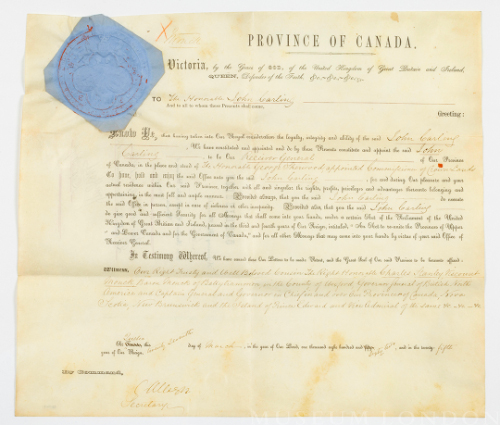 PROVINCE OF CANADA.
Victoria, by the Grace of GOD, of the United Kingdom of Great Britain and Ireland,
QUEEN, Defender of the Faith,
TO The Honorable John Carling
And to all to whom these Presents shall come,
Greeting:
Know Ye, that having taken into Our Royal consideration the loyalty, integrity and ability of the said John Carling
We have constituted and appointed and do by these Presents constitute and appoint the said John
Carling to be Our Receiver General of Our Province
of Canada, in the place and stead of The Honorable George Sherwood appointed Commissioner of Crown Lands
To have, hold and enjoy the said Office unto the said John Carling for and during Our pleasure and your
actual residence within Our said Province, together with all and singular the rights, profits, privileges and advantages thereunto belonging and
appertaining in the most full and ample manner. Provided always, that you the said John Carling do execute
the said Office in person, except in case of sickness or other incapacity. Provided also, that you the said John Carling
do give good and sufficient Security for all Moneys that shall come into your hands, under a certain Act of the Parliament of the United
Kingdom of Great Britain and Ireland, passed in the third and fourth years of Our Reign, intituled, "An Act to reunite the Provinces of Upper
"and Lower Canada and for the Government of Canada," and for all other Moneys that may come into your hands by virtue of your said Office of
Receiver General.
In Testimony Whereof, We have caused these Our Letters to be made Patent, and the Great Seal of Our said Province to be hereunto affixed:
Witness, Our Right Trusty and Well Beloved Cousin The Right Honorable Charles Stanley Viscount
Monck Baron Monck of Ballytrammon in the County of Wexford Governor General of British North
America and Captain General and Governor in Chief in and over Our Provinces of Canada, Nova
Scotia, New Brunswick and the Island of Prince Edward and Vice Admiral of the same
At Quebec, this twenty seventh day of March, in the year of Our Lord, one thousand eight hundred and sixty two and in the twenty fifth
year of Our Reign.
By Command,
C Alleyn
Secretary
MUSEUM LONDON